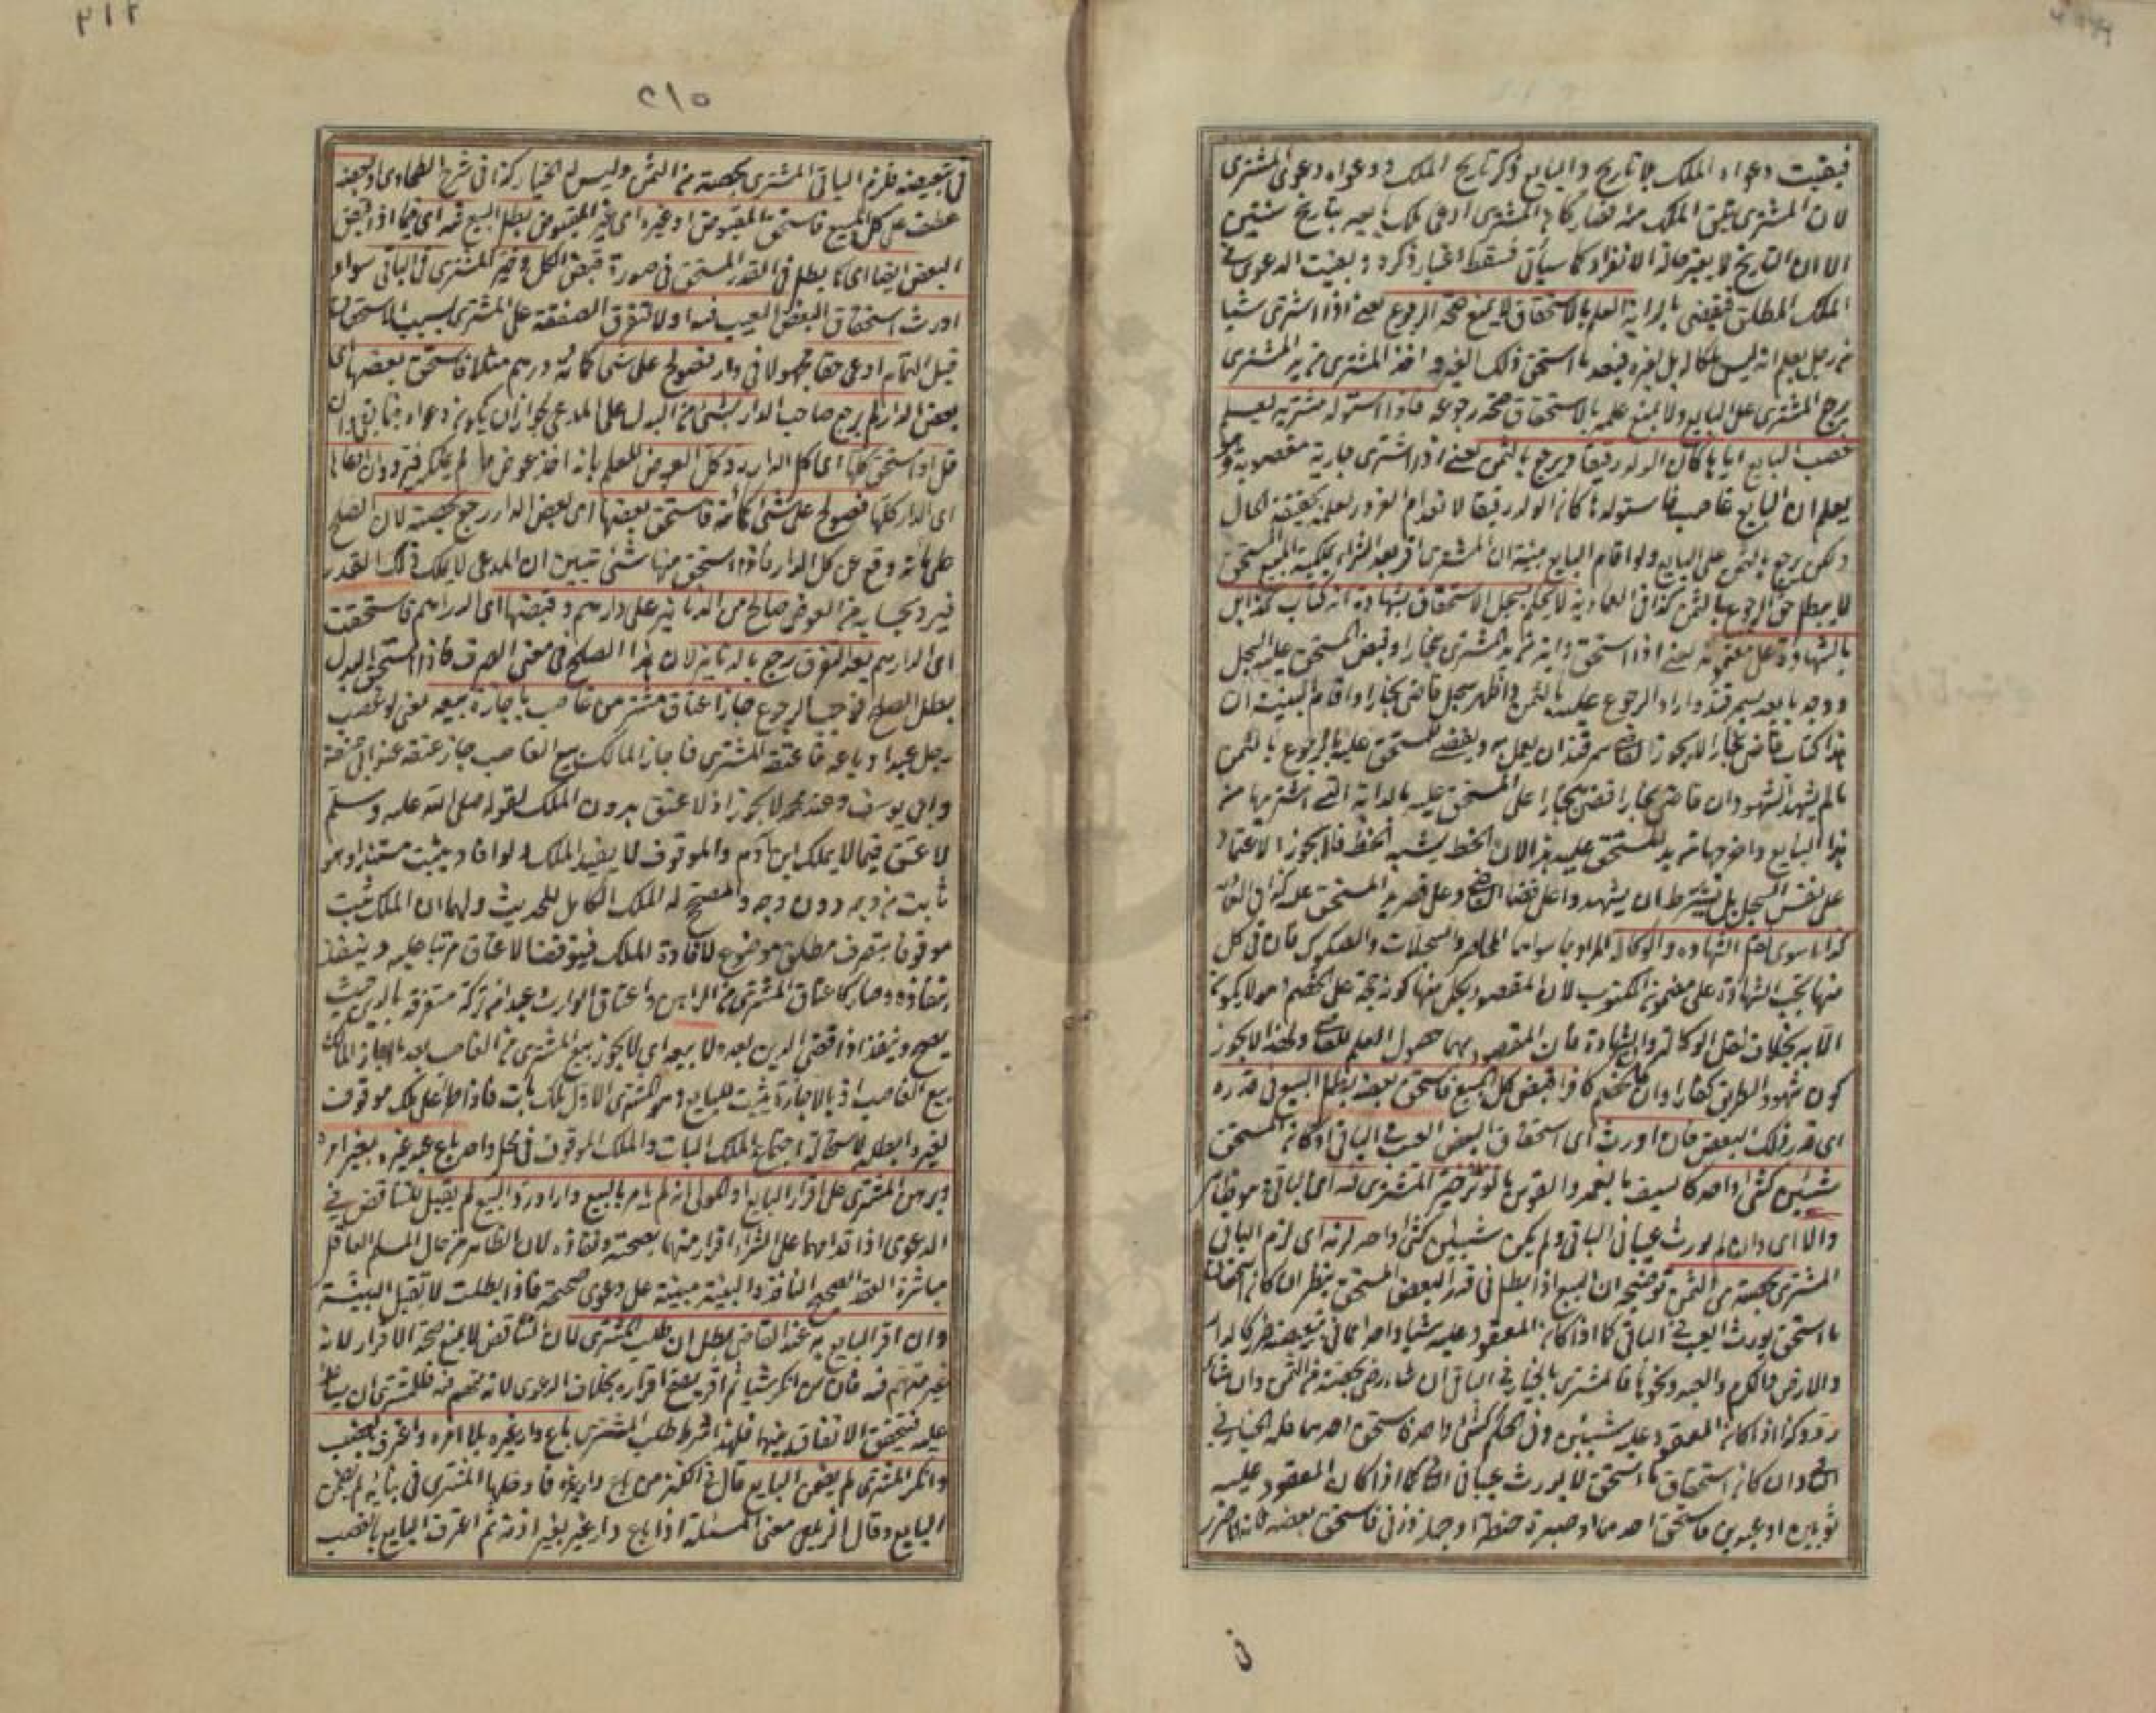 فبقيت دعواه الملك بلا تاريخ والبايع ذكر تاريخ الملك ودعواه دعوى المشترى
لان المشترى تلقى الملك منه فصار كان المشترى ادعى ملك بايعه بتاريخ سنتين
الا ان التاريخ لا يعتبر حالة الانفراد كما سيأتى فسقط اعتبار ذكره وبقيت الدعوى فى
الملك المطلق فيقضى بالدابة العلم بالاستحقاق لا يمنع صحة الرجوع يعنى اذا اشترى شيئا
من رجل يعلم انه ليس ملكا له بل لغيره فبعد ما استحق ذلك الغير واخذ المشترى من يد المشترى
يرجع المشترى على البايع ولا يمنع علمه بالاستحقاق صحة رجوعه فاذا استولد مشترية يعلم
غصب البايع اياها كان الولد رقيقا ويرجع بالثمن يعنى اذا اشترى جارية مغصوبة وهو
يعلم ان البايع غاصب فاستولدها كان الولد رقيقا لانعدام الغرور لعلمه بحقيقة الحال
ولكن يرجع بالثمن على البايع ولو اقام البايع بينة ان المشترى اقر بعد الشراء بملكية المبيع للمستحق
لا يبطل حق الرجوع بالثمن كذا فى العمادية لا يحكم بسجل الاستحقاق بشهادة انه كتاب كذا بل
بالشهادة على مضمونه يعنى اذا استحق دابة من يد المشترى ببخارا وقبض المستحق عليه السجل
ووجد بايعه بسمرقند واراد الرجوع عليه بالثمن واظهر سجل قاضى بخارا واقام البينة ان
هذا كتاب قاضى بخارا لا يجوز لقاضى سمرقند ان يعمل به ويقضى للمستحق عليه بالرجوع بالثمن
ما لم يشهد الشهود ان قاضى بخارا قضى ببخارا على المستحق عليه بالدابة التى اشتريها من
هذا البايع واخرجها من يد المستحق عليه هذا لان الخط يشبه الخط فلا يجوز الاعتماد
على نفس السجل بل يشترط ان يشهدوا على قضاء القاضى وعلى قصر يد المستحق عليه كذا فى العمادية
كذا ما سوى نقل الشهادة والوكالة المراد بما سواهما المحاضر والسجلات والصكوك فان فى كل
منها تجب الشهادة على مضمون المكتوب لان المقصود بكل منها كونه حجة على الخصم وهو لا يكون
الا به بخلاف نقل الوكالة والشهادة فان المقصود بهما حصول العلم للقاضى ولهذا لا يجوز
كون شهود الطريق كفارا وان كان الخصم كافرا قبض كل المبيع فاستحق بعضه بطل البيع فى قدره
اى قدر ذلك البعض فان اورث اى استحقاق البعض العيب فى الباقى او كان المستحق
شيئين كشئ واحد كالسيف بالغمد والقوس بالوتر خير المشترى فيه اى الباقى وهو ظاهر
والا اى وان لم يورث عيبا فى الباقى ولم يكن شيئين كشئ واحد لزمه اى لزم الباقى
المشترى بحصته من الثمن توضيحه ان البيع اذا بطل فى قدر البعض المستحق ينظر ان كان استحقاق
ما استحق يورث العيب فى الباقى كما اذا كان المعقود عليه شيئا واحدا مما فى تبعيضه ضرر كالدار
والارض والكرم والعبد ونحوها فالمشترى بالخيار فى الباقى ان شاء رضى بحصته من الثمن وان شاء
رد وكذا اذا كان المعقود عليه شيئين وفى الحكم كشئ واحد فاستحق احدهما فله الخيار فى
الباقى وان كان استحقاق ما استحق لا يورث عيبا فى الباقى كما اذا كان المعقود عليه
ثوبين او عبدين فاستحق احدهما او صبرة حنطة او جملة وزنى فاستحق بعضه فانه لا ضرر
٢١٥
فى تبعيضه فلزم الباقى المشترى بحصته من الثمن وليس له الخيار كذا فى شرح الطحاوى او بعضه
عطف على كل المبيع فاستحق المقبوض او غيره اى غير المقبوض بطل البيع فيه اى فيما اذا قبض
البعض ايضا اى كما يطل فى القدر المستحق فى صورة قبض الكل وخير المشترى فى الباقى سواء
اورث استحقاق البعض العيب فيه او لا لتفرق الصفقة على المشترى بسبب الاستحقاق
قبل التمام ادعى حقا مجهولا فى دار فصولح على شئ كمائة درهم مثلا فاستحق بعضها اى
بعض الدار لم يرجع صاحب الدار بشئ من البدل على المدعى لجواز ان يكون دعواه فيما بقى وان
قل او استحق كلها اى كل الدار رد كل العوض للعلم بانه اخذ عوض ما لم يملكه فيرده وان ادعاها
اى الدار كلها فصولح على شئ كمائة فاستحق بعضها اى بعض الدار رجع بحصته لان الصلح
على مائة وقع عن كل الدار فاذا استحق منها شئ تبين ان المدعى لا يملك ذلك القدر
فيرد بحسابه من العوض صالح من الدنانير على دراهم وقبضها اى الدراهم فاستحقت
اى الدراهم بعد التفرق رجع بالدنانير لان هذا الصلح فى معنى الصرف فاذا استحق البدل
بطل الصلح فوجب الرجوع جاز اعتاق مشتر من غاصب باجازة بيعه يعنى لو غصب
رجل عبدا وباعه فاعتقه المشترى فاجاز المالك بيع الغاصب جاز عتقه عند ابى حنيفة
وابى يوسف وعند محمد لا يجوز اذ لا عتق بدون الملك لقوله صلى الله عليه وسلم
لا عتق فيما لا يملك ابن آدم والموقوف لا يفيد الملك ولو افاد يثبت مستندا وهو
ثابت من وجه دون وجه والمصحح له الملك الكامل للحديث ولهما ان الملك ثبت
موقوفا بتصرف مطلق موضوع لافادة الملك فيتوقف الاعتاق مرتبا عليه وينفذ
بنفاذه وصار كاعتاق المشترى من الراهن واعتاق الوارث عبدا من تركة مستغرقة بالدين حيث
يصح وينفذ اذا قضى الدين بعده لا بيعه اى لا يجوز بيع المشترى من الغاصب بعد ما اجاز المالك
بيع الغاصب اذ بالاجازة يثبت للبايع وهو المشترى الاول ملك بات فاذا طرأ على ملك موقوف
لغيره ابطله لاستحالة اجتماع الملك البات والملك الموقوف فى محل واحد باع عبد غيره بغير امره
وبرهن المشترى على اقرار البايع او المولى انه لم يأمر بالبيع واراد رد البيع لم يقبل للتناقض فى
الدعوى اذ اقدامهما على الشراء اقرار منهما بصحته ونفاذه لان الظاهر من حال المسلم العاقل
مباشرة العقد الصحيح النافذ والبينة مبنية على دعوى صحيحة فاذا بطلت لا تقبل البينة
وان اقر البايع به عند القاضى بطل ان طلب المشترى لان التناقض لا يمنع صحة الاقرار لانه
غير متهم فيه فان من انكر شيئا ثم اقر يصح اقراره بخلاف الدعوى لانه متهم فيه فللمشترى ان يساعده
عليه فيتحقق الاتفاق بينهما فلهذا شرط طلب المشترى باع دار غيره بلا امره واعترف بالغصب
وانكر المشترى لم يضمن البايع قال فى الكنز من باع دار غيره فادخلها المشترى فى بنائه لم يضمن
البايع وقال الزيلعى معنى المسئلة اذا باع دار غيره بغير اذنه ثم اعترف البايع بالغصب